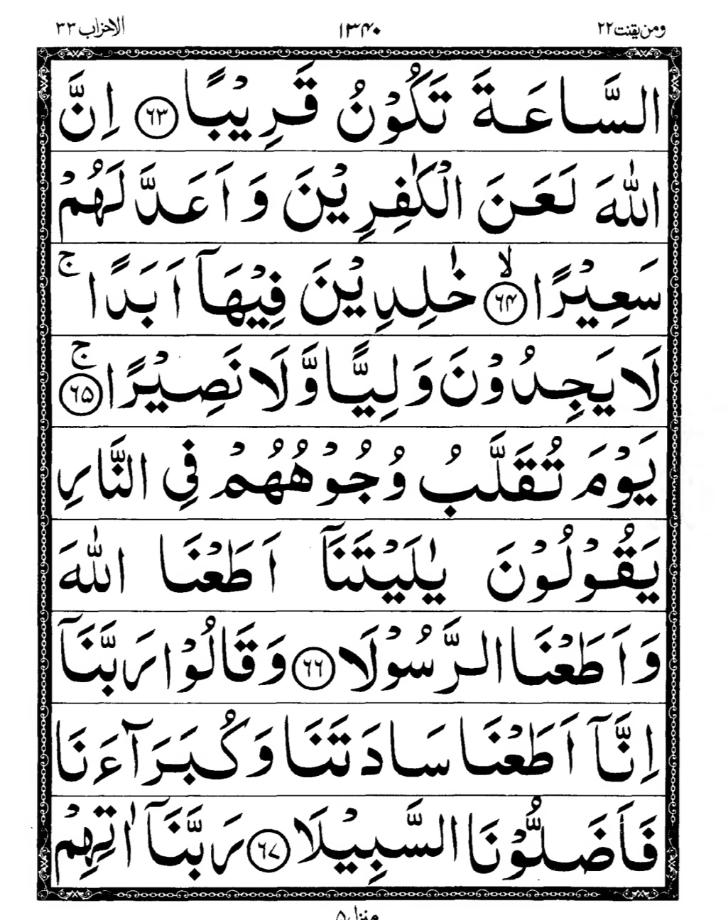 ومن یقنت ۲۲ ۱۳۴۰ الاحزاب ۳۳
السَّاعَةَ تَكُوْنُ قَرِيْبًا ﴿۶۳﴾ اِنَّ
اللّٰهَ لَعَنَ الْكٰفِرِيْنَ وَاَعَدَّ لَهُمْ
سَعِيْرًا ۙ﴿۶۴﴾ خٰلِدِيْنَ فِيْهَاۤ اَبَدًا ۚ
لَا يَجِدُوْنَ وَلِيًّا وَّلَا نَصِيْرًا ۚ﴿۶۵﴾
يَوْمَ تُقَلَّبُ وُجُوْهُهُمْ فِي النَّارِ
يَقُوْلُوْنَ يٰلَيْتَنَاۤ اَطَعْنَا اللّٰهَ
وَاَطَعْنَا الرَّسُوْلَا ﴿۶۶﴾ وَقَالُوْا رَبَّنَاۤ
اِنَّاۤ اَطَعْنَا سَادَتَنَا وَكُبَرَآءَنَا
فَاَضَلُّوْنَا السَّبِيْلَا ﴿۶۷﴾ رَبَّنَاۤ اٰتِهِمْ
منزل ۵